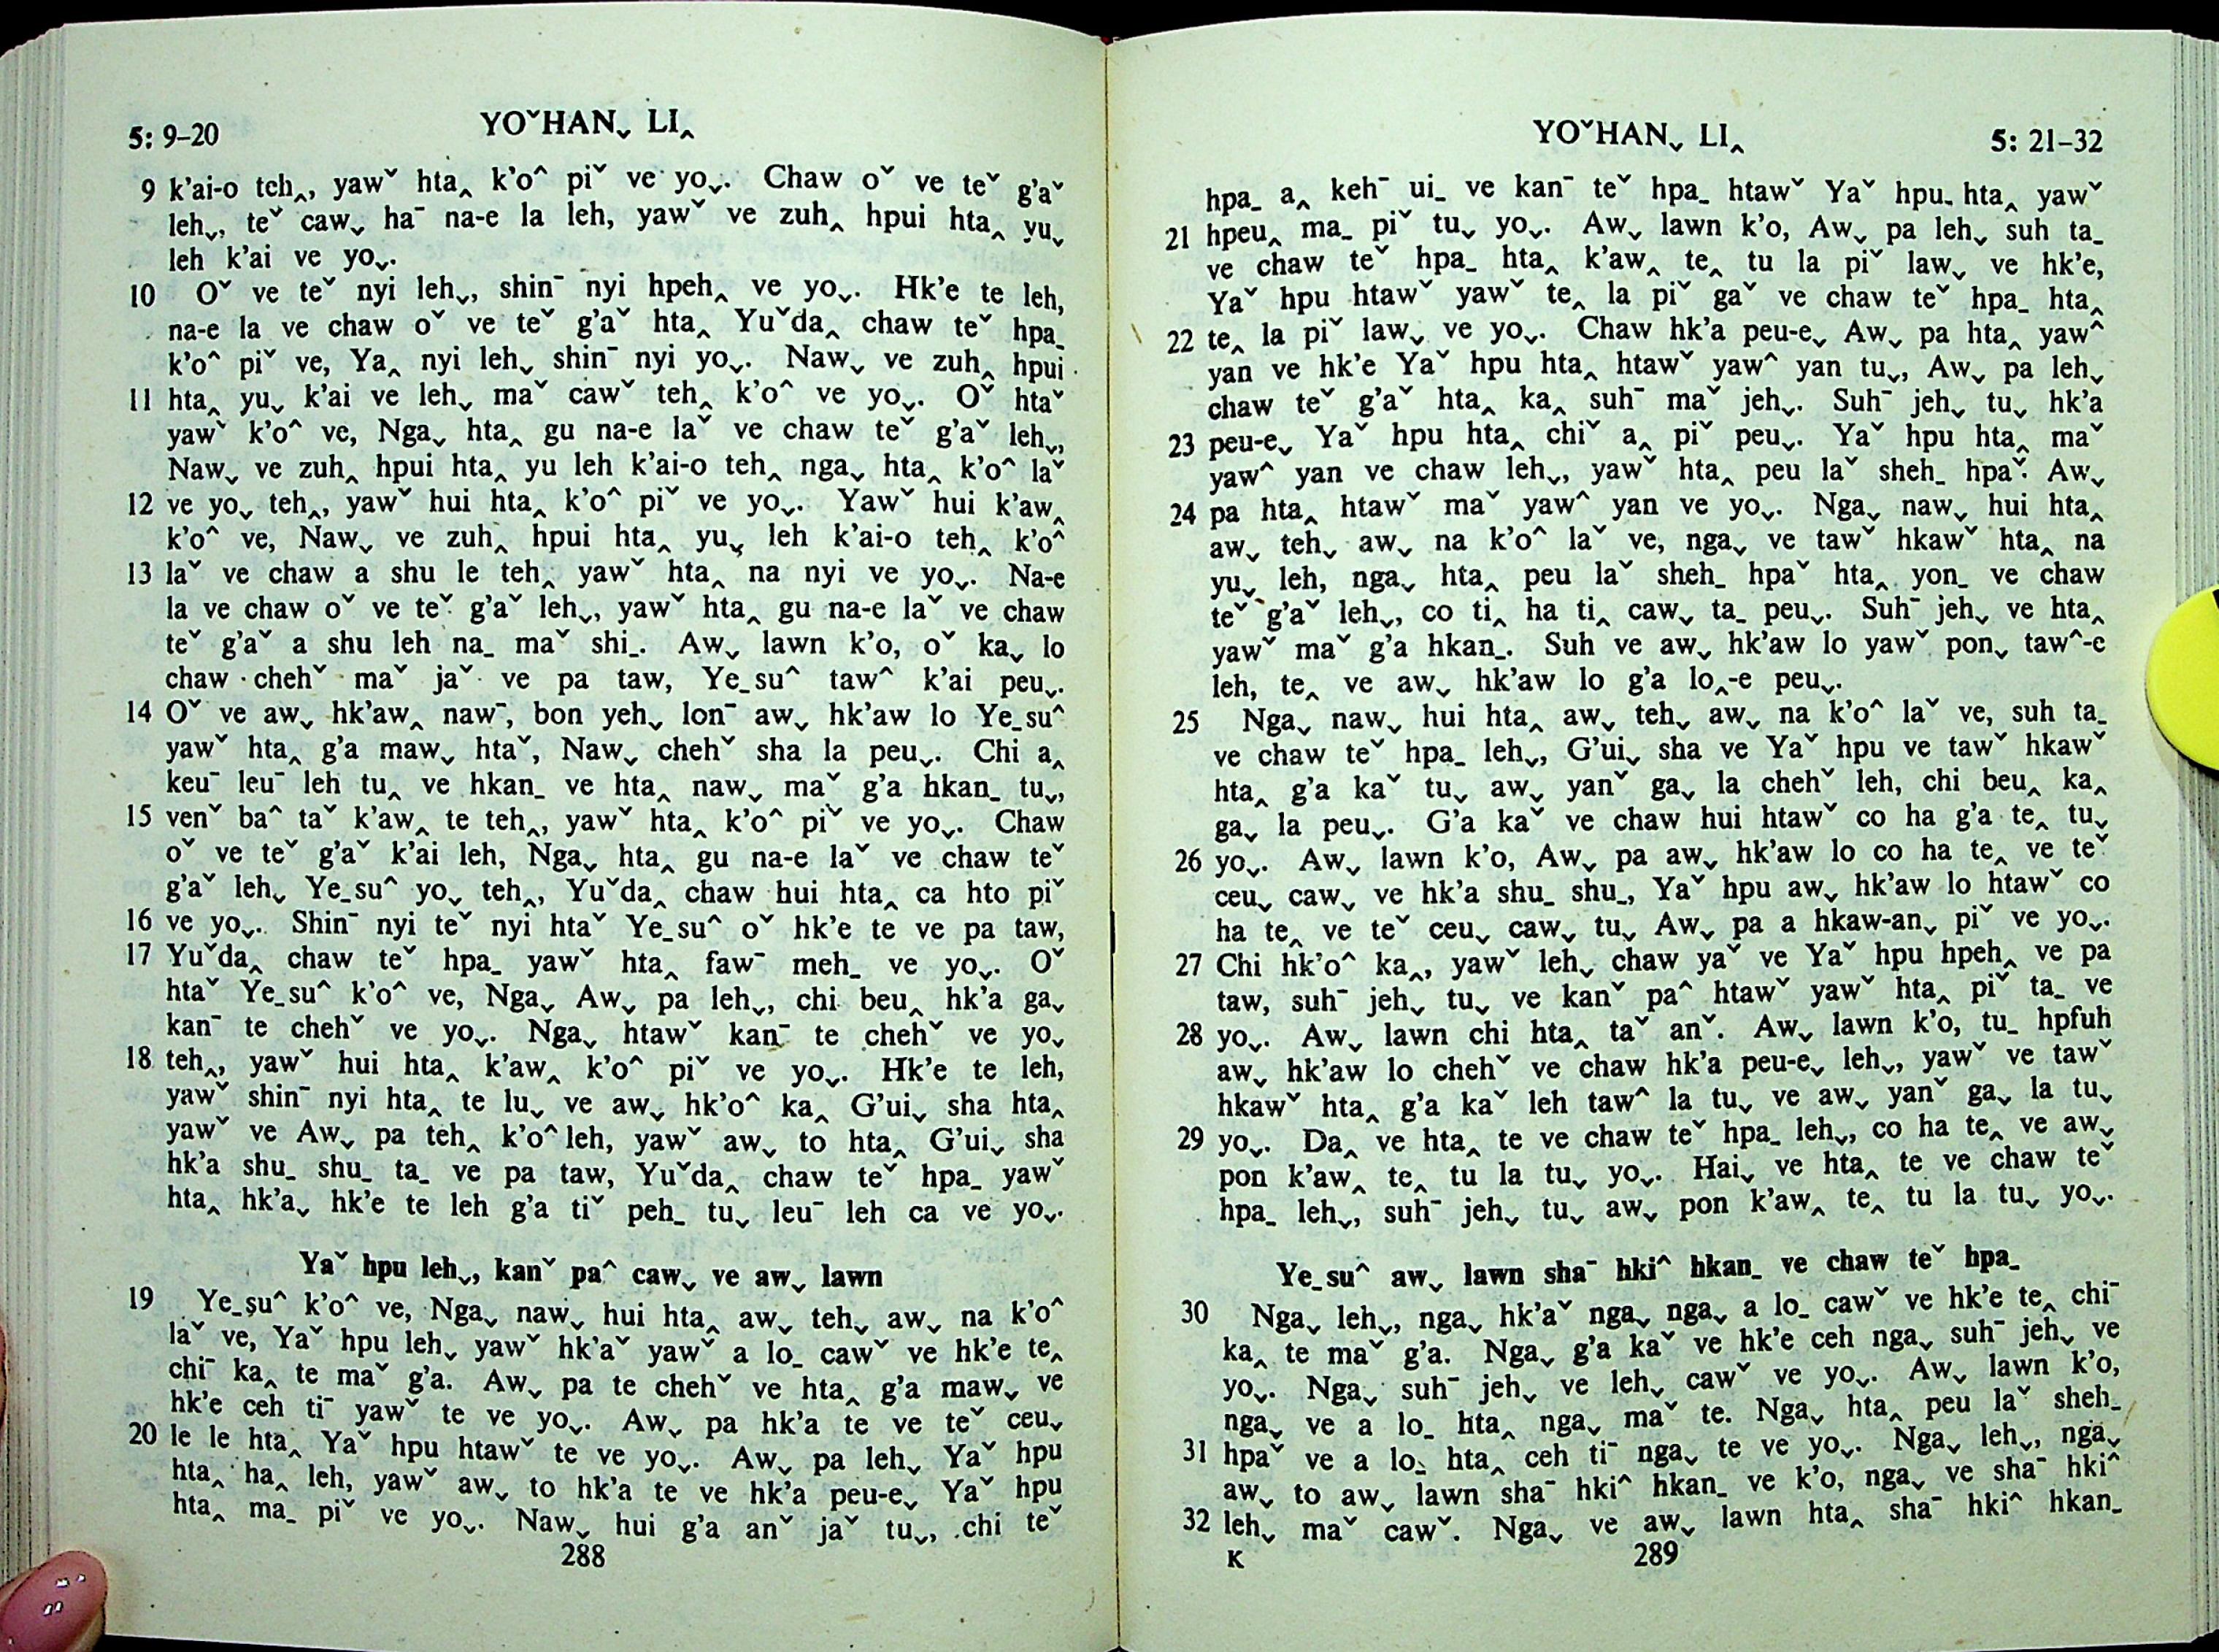 5: 9–20
YOˇHANˬ LI‸
9 k'ai-o teh‸, yawˇ hta‸ k'o^ piˇ ve yoˬ. Chaw oˇ ve teˇ g'aˇ
lehˬ, teˇ cawˬ haˉ na-e la leh, yawˇ ve zuh‸ hpui hta‸ yuˬ
leh k'ai ve yoˬ.
10 Oˇ ve teˇ nyi lehˬ, shinˉ nyi hpeh‸ ve yoˬ. Hk'e te leh,
na-e la ve chaw oˇ ve teˇ g'aˇ hta‸ Yuˇda‸ chaw teˇ hpa_
k'o^ piˇ ve, Ya‸ nyi lehˬ shinˉ nyi yoˬ. Nawˬ ve zuh‸ hpui
11 hta‸ yuˬ k'ai ve lehˬ maˇ cawˇ teh‸ k'o^ ve yoˬ. Oˇ htaˇ
yawˇ k'o^ ve, Ngaˬ hta‸ gu na-e laˇ ve chaw teˇ g'aˇ lehˬ,
Nawˬ ve zuh‸ hpui hta‸ yu leh k'ai-o teh‸ ngaˬ hta‸ k'o^ laˇ
12 ve yoˬ teh‸, yawˇ hui hta‸ k'o^ piˇ ve yoˬ. Yawˇ hui k'aw‸
k'o^ ve, Nawˬ ve zuh‸ hpui hta‸ yuˬ leh k'ai-o teh‸ k'o^
13 laˇ ve chaw a shu le teh‸ yawˇ hta‸ na nyi ve yoˬ. Na-e
la ve chaw oˇ ve teˇ g'aˇ lehˬ, yawˇ hta‸ gu na-e laˇ ve chaw
teˇ g'aˇ a shu leh na_ maˇ shi_. Awˬ lawn k'o, oˇ kaˬ lo
chaw chehˇ maˇ jaˇ ve pa taw, Ye_su^ taw^ k'ai peuˬ.
14 Oˇ ve awˬ hk'aw‸ nawˉ, bon yehˬ lonˉ awˬ hk'aw lo Ye_su^
yawˇ hta‸ g'a mawˬ htaˇ, Nawˬ chehˇ sha la peuˬ. Chi a‸
keuˉ leuˉ leh tu‸ ve hkan_ ve hta‸ nawˬ maˇ g'a hkan_ tuˬ,
15 venˇ ba^ taˇ k'aw‸ te teh‸, yawˇ hta‸ k'o^ piˇ ve yoˬ. Chaw
oˇ ve teˇ g'aˇ k'ai leh, Ngaˬ hta‸ gu na-e laˇ ve chaw teˇ
g'aˇ lehˬ Ye_su^ yoˬ teh‸, Yuˇda‸ chaw hui hta‸ ca hto piˇ
16 ve yoˬ. Shinˉ nyi teˇ nyi htaˇ Ye_su^ oˇ hk'e te ve pa taw,
17 Yuˇda‸ chaw teˇ hpa_ yawˇ hta‸ fawˉ meh_ ve yoˬ. Oˇ
htaˇ Ye_su^ k'o^ ve, Ngaˬ Awˬ pa lehˬ, chi beu‸ hk'a gaˬ
kanˉ te chehˇ ve yoˬ. Ngaˬ htawˇ kanˉ te chehˇ ve yoˬ
18 teh‸, yawˇ hui hta‸ k'aw‸ k'o^ piˇ ve yoˬ. Hk'e te leh,
yawˇ shinˉ nyi hta‸ te luˬ ve awˬ hk'o^ ka‸ G'uiˬ sha hta‸
yawˇ ve Awˬ pa teh‸ k'o^ leh, yawˇ awˬ to hta‸ G'uiˬ sha
hk'a shu_ shu_ ta_ ve pa taw, Yuˇda‸ chaw teˇ hpa_ yawˇ
hta‸ hk'aˬ hk'e te leh g'a tiˇ peh_ tuˬ leuˉ leh ca ve yoˬ.
Yaˇ hpu lehˬ, kanˇ pa^ cawˬ ve awˬ lawn
19 Ye_su^ k'o^ ve, Ngaˬ nawˬ hui hta‸ awˬ tehˬ awˬ na k'o^
laˇ ve, Yaˇ hpu lehˬ yawˇ hk'aˇ yawˇ a lo_ cawˇ ve hk'e te‸
chiˉ ka‸ te maˇ g'a. Awˬ pa te chehˇ ve hta‸ g'a mawˬ ve
hk'e ceh tiˉ yawˇ te ve yoˬ. Awˬ pa hk'a te ve teˇ ceuˬ
20 le le hta‸ Yaˇ hpu htawˇ te ve yoˬ. Awˬ pa lehˬ Yaˇ hpu
hta‸ ha‸ leh, yawˇ awˬ to hk'a te ve hk'a peu-eˬ Yaˇ hpu
hta‸ ma_ piˇ ve yoˬ. Nawˬ hui g'a anˇ jaˇ tuˬ, chi teˇ
288
YOˇHANˬ LI‸
5: 21–32
hpa_ a‸ kehˉ ui_ ve kanˉ teˇ hpa_ htawˇ Yaˇ hpu_ hta‸ yawˇ
21 hpeu‸ ma_ piˇ tuˬ yoˬ. Awˬ lawn k'o, Awˬ pa lehˬ suh ta_
ve chaw teˇ hpa_ hta‸ k'aw‸ te‸ tu la piˇ lawˬ ve hk'e,
Yaˇ hpu htawˇ yawˇ te‸ la piˇ gaˇ ve chaw teˇ hpa_ hta‸
22 te‸ la piˇ lawˬ ve yoˬ. Chaw hk'a peu-eˬ Awˬ pa hta‸ yaw^
yan ve hk'e Yaˇ hpu hta‸ htawˇ yaw^ yan tuˬ, Awˬ pa lehˬ
chaw teˇ g'aˇ hta‸ ka‸ suhˉ maˇ jehˬ. Suhˉ jehˬ tuˬ hk'a
23 peu-eˬ Yaˇ hpu hta‸ chiˇ a‸ piˇ peuˬ. Yaˇ hpu hta‸ maˇ
yaw^ yan ve chaw lehˬ, yawˇ hta‸ peu laˇ sheh_ hpaˇ Awˬ
24 pa hta‸ htawˇ maˇ yaw^ yan ve yoˬ. Ngaˬ nawˬ hui hta‸
awˬ tehˬ awˬ na k'o^ laˇ ve, ngaˬ ve tawˇ hkawˇ hta‸ na
yuˬ leh, ngaˬ hta‸ peu laˇ sheh_ hpaˇ hta‸ yon_ ve chaw
teˇ g'aˇ lehˬ, co ti‸ ha ti‸ cawˬ ta_ peuˬ. Suhˉ jehˬ ve hta‸
yawˇ maˇ g'a hkan_. Suh ve awˬ hk'aw lo yawˇ ponˬ taw^-e
leh, te‸ ve awˬ hk'aw lo g'a lo‸-e peuˬ.
25 Ngaˬ nawˬ hui hta‸ awˬ tehˬ awˬ na k'o^ laˇ ve, suh ta_
ve chaw teˇ hpa_ lehˬ, G'uiˬ sha ve Yaˇ hpu ve tawˇ hkawˇ
hta‸ g'a kaˇ tuˬ awˬ yanˇ gaˬ la chehˇ leh, chi beu‸ ka‸
gaˬ la peuˬ. G'a kaˇ ve chaw hui htawˇ co ha g'a te‸ tuˬ
26 yoˬ. Awˬ lawn k'o, Awˬ pa awˬ hk'aw lo co ha te‸ ve teˇ
ceuˬ cawˬ ve hk'a shu_ shu_, Yaˇ hpu awˬ hk'aw lo htawˇ co
ha te‸ ve teˇ ceuˬ cawˬ tuˬ Awˬ pa a hkaw-anˬ piˇ ve yoˬ.
27 Chi hk'o^ ka‸, yawˇ lehˬ chaw yaˇ ve Yaˇ hpu hpeh‸ ve pa
taw, suhˉ jehˬ tuˬ ve kanˇ pa^ htawˇ yawˇ hta‸ piˇ ta_ ve
28 yoˬ. Awˬ lawn chi hta‸ taˇ anˇ. Awˬ lawn k'o, tu_ hpfuh
awˬ hk'aw lo chehˇ ve chaw hk'a peu-eˬ lehˬ, yawˇ ve tawˇ
hkawˇ hta‸ g'a kaˇ leh taw^ la tuˬ ve awˬ yanˇ gaˬ la tuˬ
29 yoˬ. Da‸ ve hta‸ te ve chaw teˇ hpa_ lehˬ, co ha te‸ ve awˬ
pon k'aw‸ te‸ tu la tuˬ yoˬ. Haiˬ ve hta‸ te ve chaw teˇ
hpa_ lehˬ, suhˉ jehˬ tuˬ awˬ pon k'aw‸ te‸ tu la tuˬ yoˬ.
Ye_su^ awˬ lawn shaˉ hki^ hkan_ ve chaw teˇ hpa_
30 Ngaˬ lehˬ, ngaˬ hk'aˇ ngaˬ ngaˬ a lo_ cawˇ ve hk'e te‸ chiˉ
ka‸ te maˇ g'a. Ngaˬ g'a kaˇ ve hk'e ceh ngaˬ suhˉ jehˬ ve
yoˬ. Ngaˬ suhˉ jehˬ ve lehˬ cawˇ ve yoˬ. Awˬ lawn k'o,
ngaˬ ve a lo_ hta‸ ngaˬ maˇ te. Ngaˬ hta‸ peu laˇ sheh_
31 hpaˇ ve a lo_ hta‸ ceh tiˉ ngaˬ te ve yoˬ. Ngaˬ lehˬ, ngaˬ
awˬ to awˬ lawn shaˉ hki^ hkan_ ve k'o, ngaˬ ve shaˉ hki^
32 lehˬ maˇ cawˇ. Ngaˬ ve awˬ lawn hta‸ shaˉ hki^ hkan_
K
289